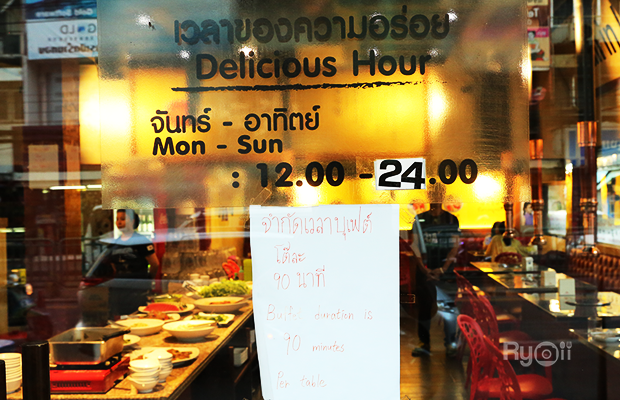 เวลาของความอร่อย
Delicious Hour
จันทร์ - อาทิตย์
Mon - Sun
: 12.00 - 24.00
จำกัดเวลาบุฟเฟ่ต์
โต๊ะละ
90 นาที
duration is
90 minutes
Per table
Ryoii